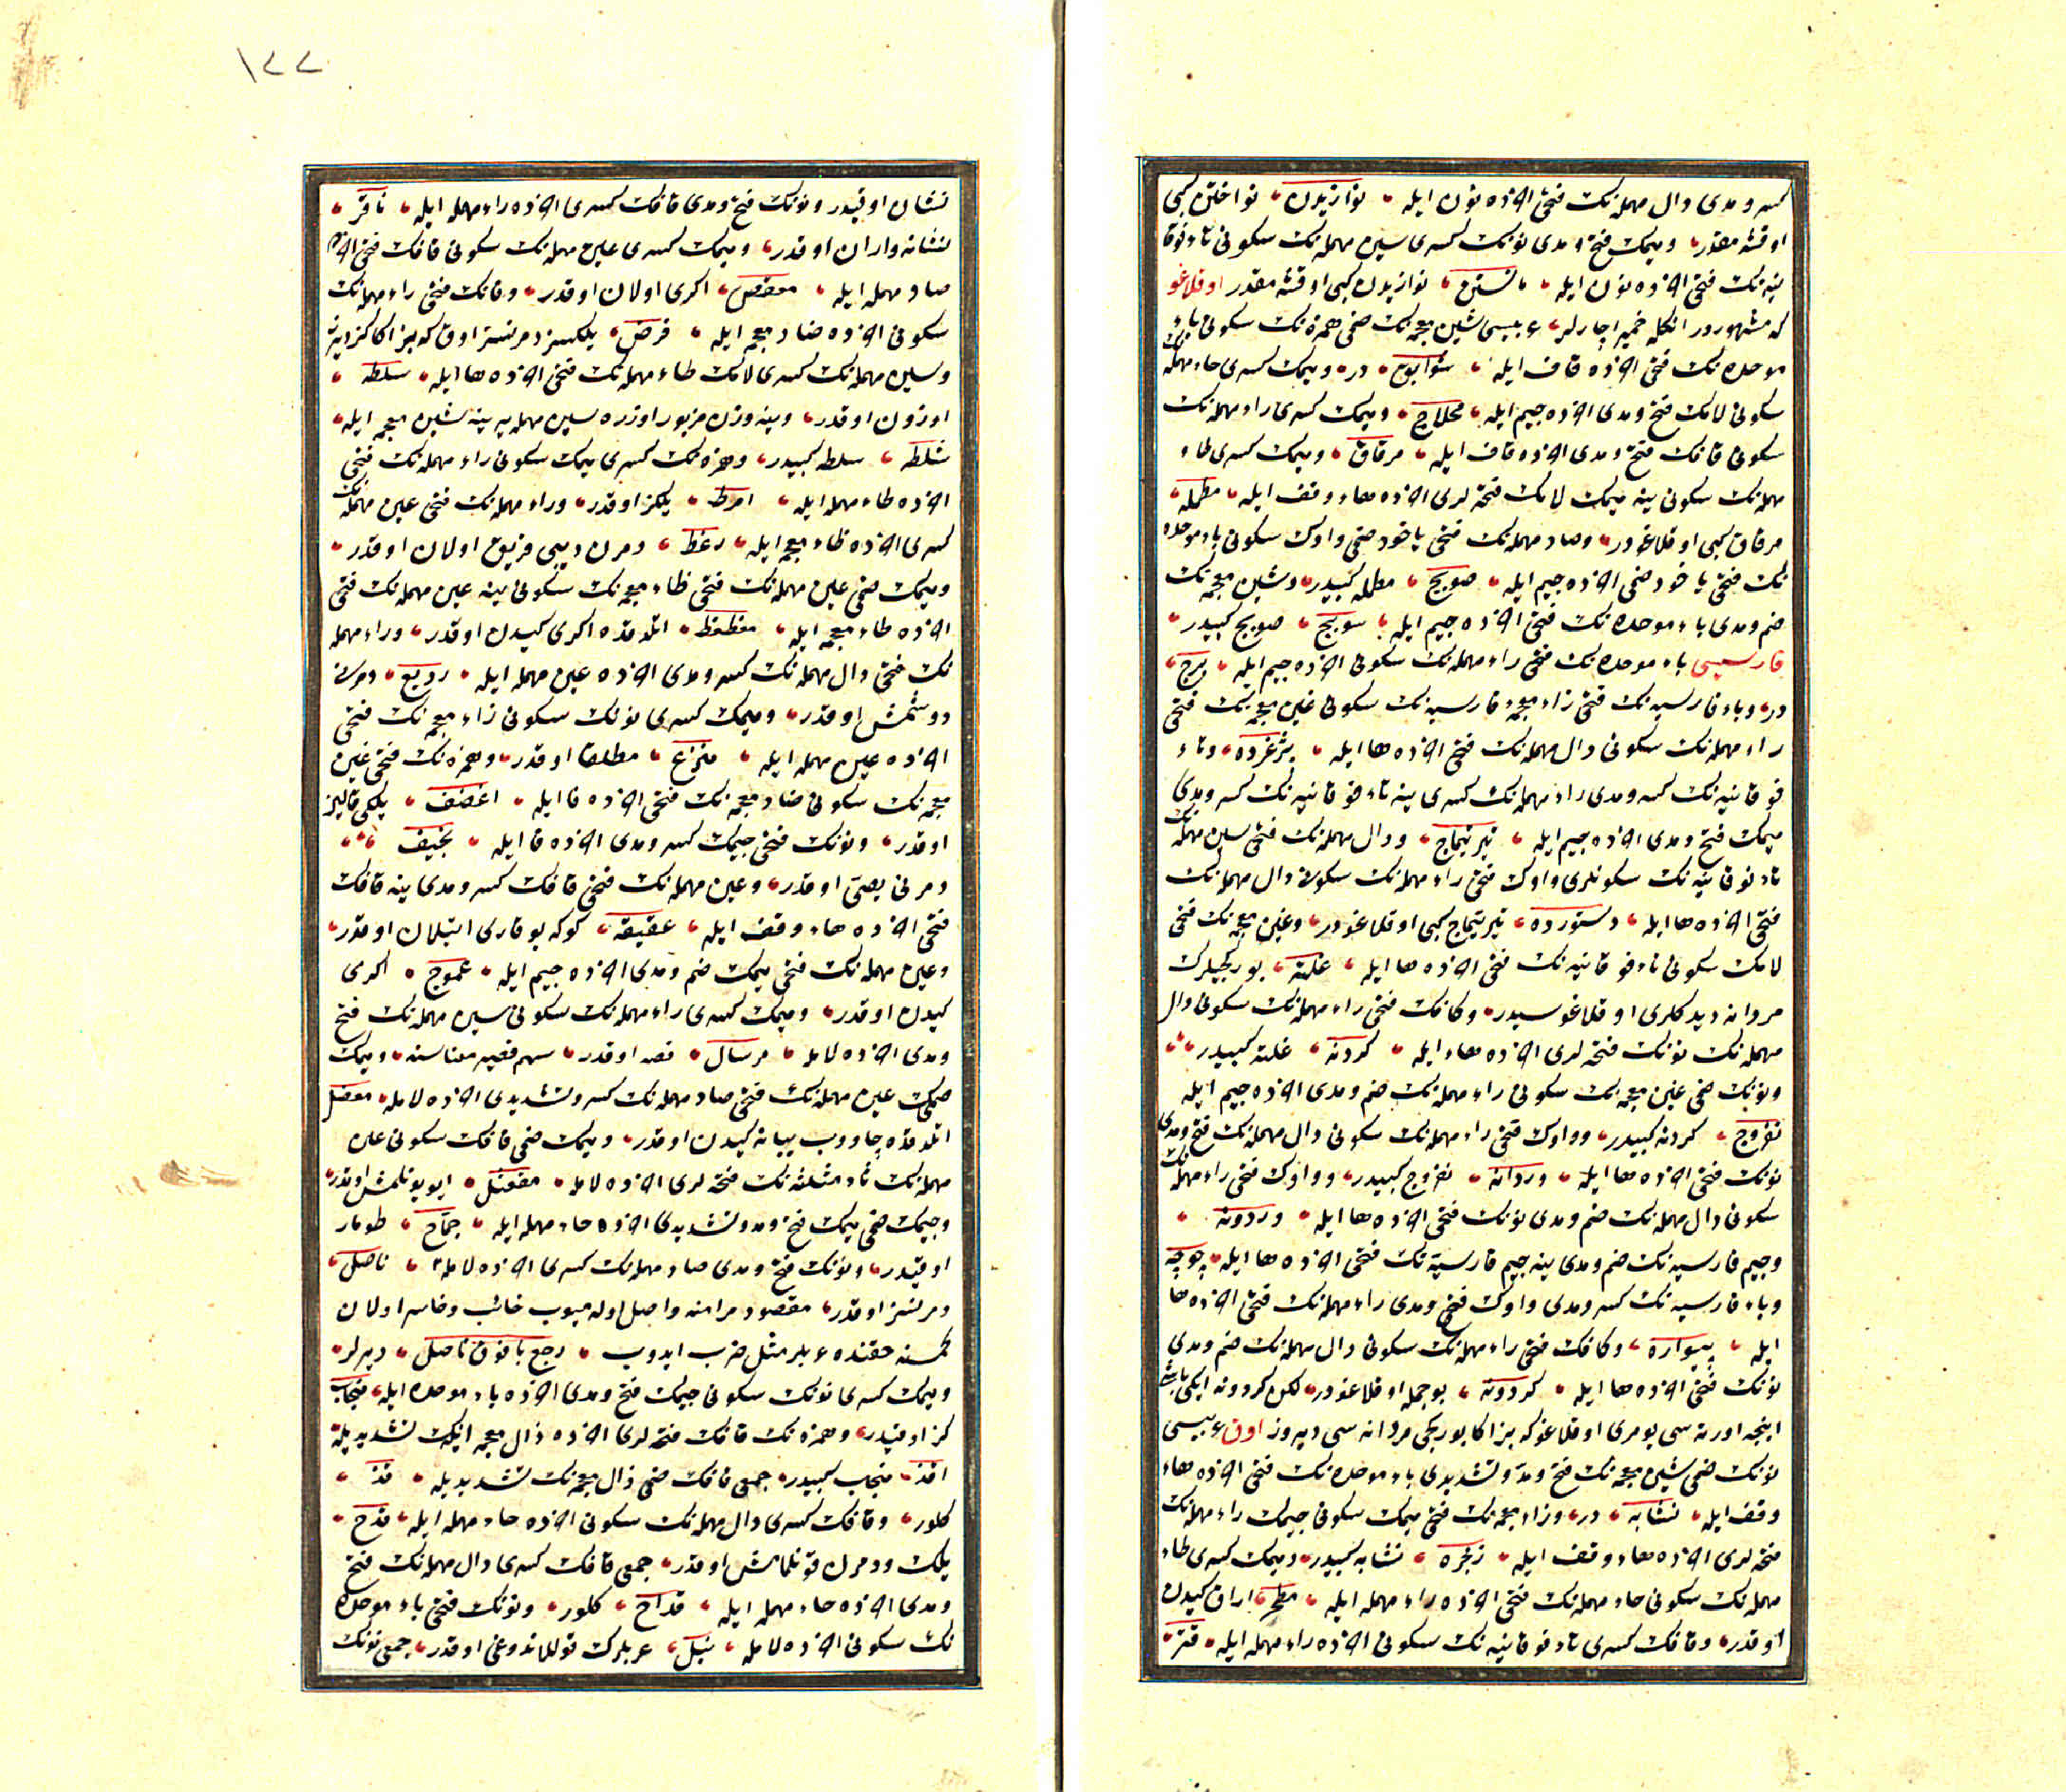 كسر و مدى دال مهمله‌نك فتحى اخرده نون ايله نوازيدن نواختن كبى
اوقشه‌مقدر وميمك فتح و مدى نونك كسرى سين مهمله‌نك سكونى تاء فوقا
نيه‌نك فتحى اخرده نون ايله مانستن نوازيدن كبى اوقشه‌مقدر اوقلاغو
كه مشهوردر انكله خمير اچارلر عربيسى شين معجمه‌نك ضمى همزه‌نك سكونى باء
موحده‌نك فتحى اخرده قاف ايله شؤابوع در وميمك كسرى حاء مهمله‌نك
سكونى لامك فتح و مدى اخرده جيم ايله محلاج وميمك كسرى راء مهمله‌نك
سكونى قافك فتح و مدى اخرده قاف ايله مرقاق وميمك كسرى طاء
مهمله‌نك سكونى ينه ميمك لامك فتحه‌لرى اخرده هاء وقف ايله مطمله
مرقاق كبى اوقلاغودر وصاد مهمله‌نك فتحى ياخود ضمى واوك سكونى باء موحده
نك فتحى ياخود ضمى اخرده جيم ايله صوبج مطمله كبيدر وشين معجمه‌نك
ضم و مدى باء موحده‌نك فتحى اخرده جيم ايله شوبج صوبج كبيدر
فارسيسى باء موحده‌نك فتحى راء مهمله‌نك سكونى اخرده جيم ايله برج
در وباء فارسيه‌نك فتحى زاء معجمه فارسيه‌نك سكونى غين معجمه‌نك فتحى
راء مهمله‌نك سكونى دال مهمله‌نك فتحى اخرده ها ايله پژغرده وتاء
فوقانيه‌نك كسر و مدى راء مهمله‌نك كسرى ينه تاء فوقانيه‌نك كسر و مدى
ميمك فتح و مدى اخرده جيم ايله تيرتيماج ودال مهمله‌نك فتحى سين مهمله‌نك
تاء فوقانيه‌نك سكونلرى واوك فتحى راء مهمله‌نك سكونى دال مهمله‌نك
فتحى اخرده ها ايله دستورده تيرتيماج كبى اوقلاغودر وغين معجمه‌نك فتحى
لامك سكونى تاء فوقانيه‌نك فتحى اخرده ها ايله غلته بوركجيلرك
مردانه ديدكلرى اوقلاغوسيدر وكافك فتحى راء مهمله‌نك سكونى دال
مهمله‌نك نونك فتحه‌لرى اخرده هاء ايله كردنه غلته كبيدر
ونونك ضمى غين معجمه‌نك سكونى راء مهمله‌نك ضم و مدى اخرده جيم ايله
نغروج كردنه كبيدر وواوك فتحى راء مهمله‌نك سكونى دال مهمله‌نك فتح و مدى
نونك فتحى اخرده ها ايله وردانه نغروج كبيدر وواوك فتحى راء مهمله‌نك
سكونى دال مهمله‌نك ضم و مدى نونك فتحى اخرده ها ايله وردونه
وجيم فارسيه‌نك ضم و مدى ينه جيم فارسيه‌نك فتحى اخرده ها ايله چوچه
وباء فارسيه‌نك كسر و مدى واوك فتح و مدى راء مهمله‌نك فتحى اخرده ها
ايله پيواره وكافك فتحى راء مهمله‌نك سكونى دال مهمله‌نك ضم و مدى
نونك فتحى اخرده ها ايله كردونه بوجمله اوقلاغودر لكن كردونه ايكى باشى
اينجه اورته‌سى يومرى اوقلاغو كه بز اكا بوركجى مردانه‌سى ديروز اوق عربيسى
نونك ضمى شين معجمه‌نك فتح و مد و تشديدى باء موحده‌نك فتحى اخرده هاء
وقف ايله نشابه در وزاء معجمه‌نك فتحى ميمك سكونى جيمك راء مهمله‌نك
فتحه‌لرى اخرده هاء وقف ايله زمجره نشابه كبيدر وميمك كسرى طاء
مهمله‌نك سكونى حاء مهمله‌نك فتحى اخرده راء مهمله ايله مطحر اراق كيدن
اوقدر وقافك كسرى تاء فوقانيه‌نك سكونى اخرده راء مهمله ايله قتر
١٢٢
نشان اوقيدر ونونك فتح و مدى قافك كسرى اخرده راء مهمله ايله ناقر
نشانه واران اوقدر وميمك كسرى عين مهمله‌نك سكونى قافك فتحى اخرده
صاد مهمله ايله معقص اكرى اولان اوقدر وفانك فتحى راء مهمله‌نك
سكونى اخرده ضاد معجمه ايله فرض يلكسز و مرنسز اوق كه بز اكا كز ديروز
وسين مهمله‌نك كسرى لامك طاء مهمله‌نك فتحى اخرده ها ايله سلطه
اوزون اوقدر وينه وزن مزبور اوزره سين مهمله يرينه شين معجمه ايله
شلطه سلطه كبيدر وهمزه‌نك كسرى ميمك سكونى راء مهمله‌نك فتحى
اخرده طاء مهمله ايله امرط يلكز اوقدر وراء مهمله‌نك فتحى عين مهمله‌نك
كسرى اخرده ظاء معجمه ايله رعظ دمرن ديبى قريق اولان اوقدر
وميمك ضمى عين مهمله‌نك فتحى ظاء معجمه‌نك سكونى ينه عين مهمله‌نك فتحى
اخرده ظاء معجمه ايله معظعظ اتلدقده اكرى كيدن اوقدر وراء مهمله
نك فتحى دال مهمله‌نك كسر و مدى اخرده عين مهمله ايله رديع دمرنى
دوشمش اوقدر وميمك كسرى نونك سكونى زاء معجمه‌نك فتحى
اخرده عين مهمله ايله منزع مطلقا اوقدر وهمزه‌نك فتحى غين
معجمه‌نك سكونى ضاد معجمه‌نك فتحى اخرده فا ايله اغضف يلكى قالين
اوقدر ونونك فتحى جيمك كسر و مدى اخرده فا ايله نجيف
دمرنى يصى اوقدر وعين مهمله‌نك فتحى قافك كسر و مدى ينه قافك
فتحى اخرده هاء وقف ايله عقيقه كوكه يوقارى اتيلان اوقدر
وعين مهمله‌نك فتحى ميمك ضم و مدى اخرده جيم ايله عموج اكرى
كيدن اوقدر وميمك كسرى راء مهمله‌نك سكونى سين مهمله‌نك فتح
و مدى اخرده لامله مرسال قصه اوقدر سهم قصير معناسنه وميمك
ضمى عين مهمله‌نك فتحى صاد مهمله‌نك كسر و تشديدى اخرده لامله معصل
اتلدقده چاووب يبانه كيدن اوقدر وميمك ضمى قافك سكونى عين
مهمله‌نك ثاء مثلثه‌نك فتحه‌لرى اخرده لامله مقعثل ايو يونلمش اوقدر
وجيمك ضمى ميمك فتح و مد و تشديدى اخرده حاء مهمله ايله جماح طومار
اوقيدر ونونك فتح و مدى صاد مهمله‌نك كسرى اخرده لامله ناصل
دمرنسز اوقدر مقصود مرامنه واصل اوله‌ميوب خائب و خاسر اولان
كمسنه حقنده عربلر مثل ضرب ايدوب رجع بافوق ناصل ديرلر
وميمك كسرى نونك سكونى جيمك فتح و مدى اخرده باء موحده ايله منجاب
كز اوقيدر وهمزه‌نك قافك فتحه‌لرى اخرده ذال معجمه‌نك تشديديله
اقذ منجاب كبيدر جمعى قافك ضمى ذال معجمه‌نك تشديديله قذ
كلور وقافك كسرى دال مهمله‌نك سكونى اخرده حاء مهمله ايله قدح
يلك ودمرن قونلمامش اوقدر جمعى قافك كسرى دال مهمله‌نك فتح
و مدى اخرده حاء مهمله ايله قداح كلور ونونك فتحى باء موحده
نك سكونى اخرده لامله نبل عربلرك قوللاندوغى اوقدر جمعى نونك